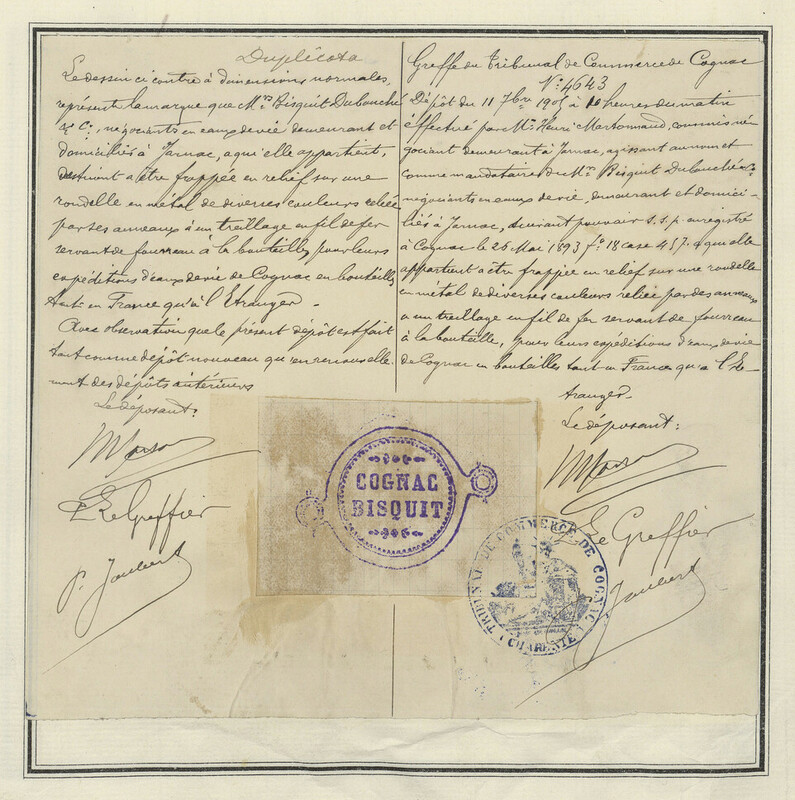 Duplicata
Le dessin ci contre à dimensions normales,
représente la marque que Mrs Bisquit Dubouché
& Cie, négociants en eaux de vie demeurant et
domiciliés à Jarnac, à qui elle appartient,
destinent à être frappée en relief sur une
rondelle en métal de diverses couleurs reliée
par ses anneaux à un treillage en fil de fer
servant de fourreau à la bouteille, pour leurs
expéditions d'eaux de vie de Cognac en bouteilles
tant en France qu'à l'Etranger.
Avec observation que le présent dépôt est fait
tant comme dépôt nouveau qu'en renouvelle
ment des dépôts antérieurs
Le déposant:
Le Greffier
P. Joubert
Greffe du Tribunal de Commerce de Cognac
No 4643
Dépôt du 11 7bre 1905 à heures du matin
effectué par Mr Henri commis né-
gociant demeurant à Jarnac, agissant au nom et
comme mandataire de Mrs Bisquit Dubouché & Cie
négociants en eaux de vie, demeurant et domici-
liés à Jarnac, suivant pouvoir s.s.p. enregistré
à Cognac le 26 Mai 1893 fo 18 case 457. qu'elle
appartient à être frappée en relief sur une rondelle
en métal de diverses couleurs reliée par des anneaux
a un treillage en fil de fer servant de fourreau
à la bouteille, pour leurs expéditions d'eaux de vie
de Cognac en bouteilles tant en France qu'à l'E-
tranger.
Le déposant:
Le Greffier
Joubert
COGNAC
BISQUIT
TRIBUNAL DE COMMERCE DE COGNAC
(CHARENTE)